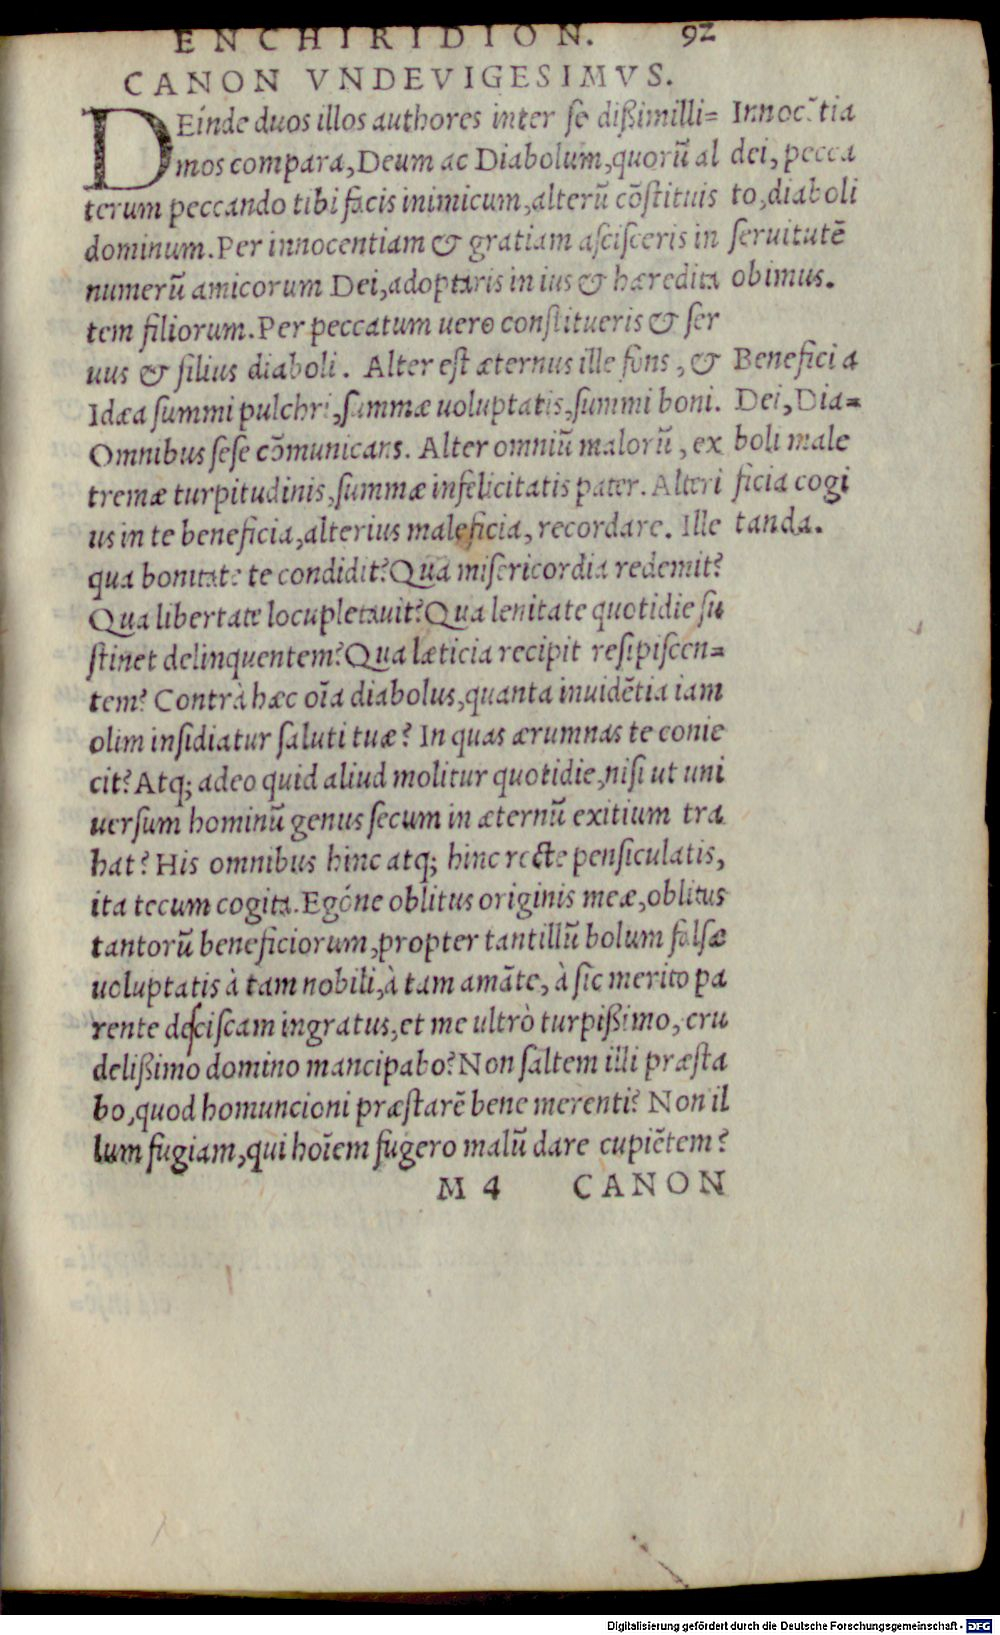 ENCHIRIDION. 92
CANON VNDEVIGESIMVS.
DEinde duos illos authores inter se dißimilli=
mos compara, Deum ac Diabolum, quorũ al
terum peccando tibi facis inimicum, alterũ cõstituis
dominum. Per innocentiam & gratiam ascisceris in
numerũ amicorum Dei, adoptaris in ius & hæredita
tem filiorum. Per peccatum uero constitueris & ser
uus & filius diaboli. Alter est æternus ille fons, &
Idæa summi pulchri, summæ uoluptatis, summi boni.
Omnibus sese cõmunicans. Alter omniũ malorũ, ex
tremæ turpitudinis, summæ infelicitatis pater. Alteri
us in te beneficia, alterius maleficia, recordare. Ille
qua bonitate te condidit? Qua misericordia redemit?
Qua libertate locupletauit? Qua lenitate quotidie su
stinet delinquentem? Qua læticia recipit resipiscen=
tem? Contrà hæc oĩa diabolus, quanta inuidẽtia iam
olim insidiatur saluti tuæ? In quas ærumnas te conie
cit? Atq; adeo quid aliud molitur quotidie, nisi ut uni
uersum hominũ genus secum in æternũ exitium tra
hat? His omnibus hinc atq; hinc recte pensiculatis,
ita tecum cogita. Egóne oblitus originis meæ, oblitus
tantorũ beneficiorum, propter tantillũ bolum falsæ
uoluptatis à tam nobili, à tam amãte, à sic merito pa
rente desciscam ingratus, et me ultrò turpißimo, cru
delißimo domino mancipabo? Non saltem illi præsta
bo, quod homuncioni præstarẽ bene merenti? Non il
lum fugiam, qui hoĩem fugero malũ dare cupiẽtem?
M 4 CANON
Innocẽtia
dei, pecca
to, diaboli
seruitutẽ
obimus.
Beneficia
Dei, Dia=
boli male
ficia cogi
tanda.
Digitalisierung gefördert durch die Deutsche Forschungsgemeinschaft - DFG